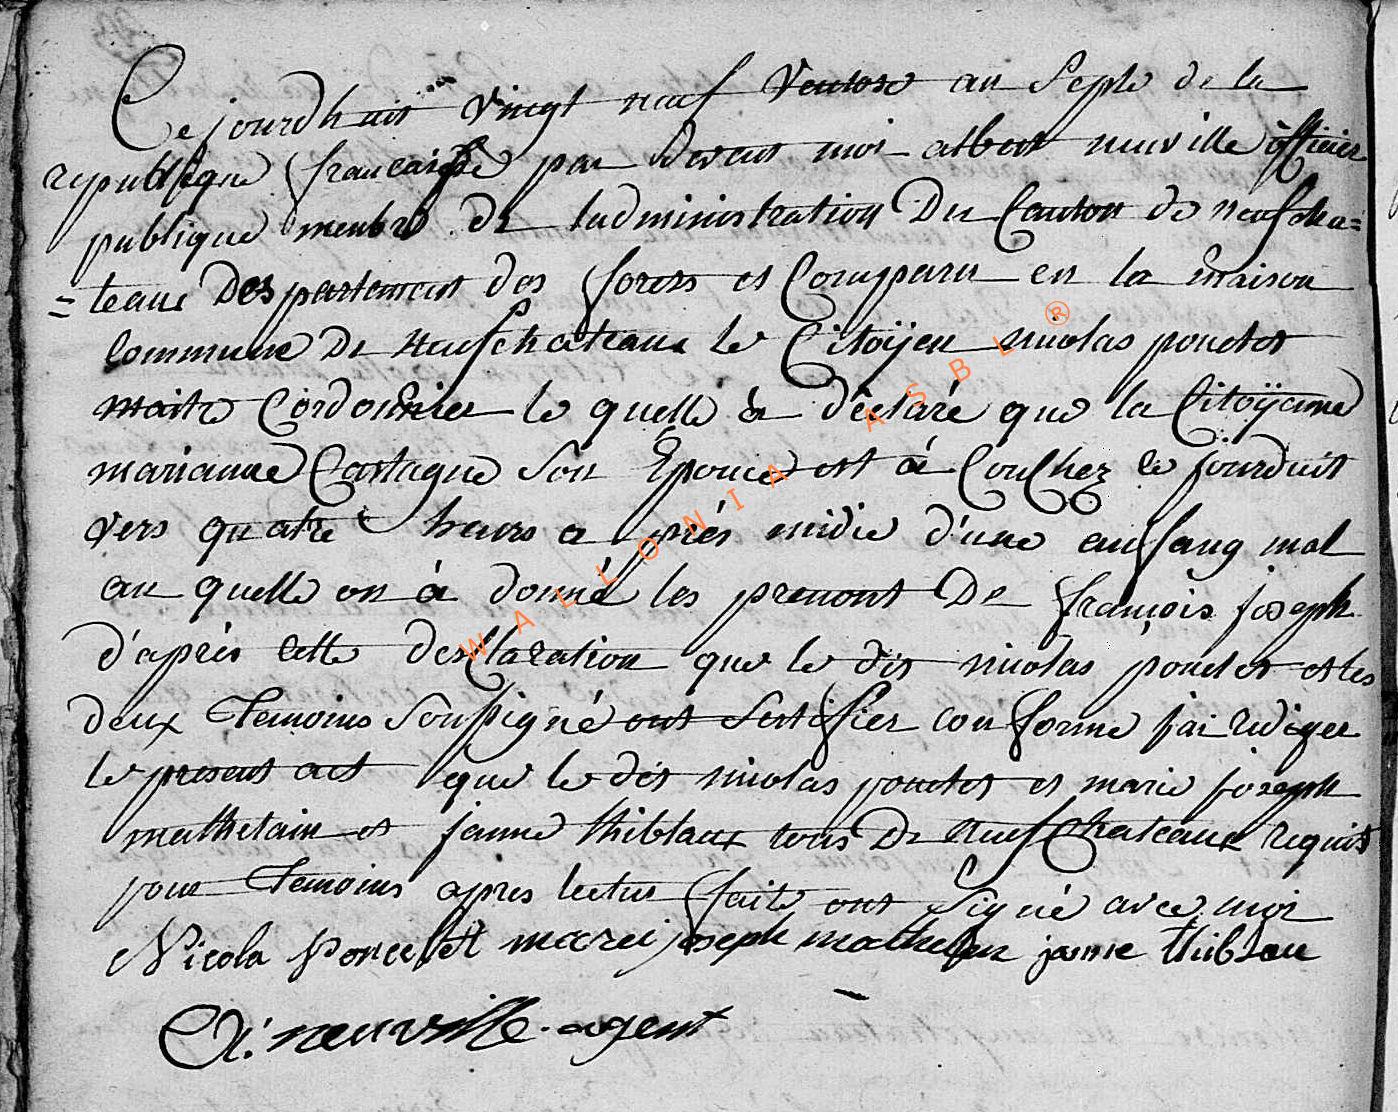 Ce jourdhuis vingt neuf Ventose an Septe de la
republique francaisse par devant moi albert neuville officier
publique menbre de ladministration Du Canton de neufcha=
=teaux Des partement des forets et Comparu en la maison
Commune De Neufchateaux le Citoÿen nicolas poncelet
maitre Cordonnier le quelle a déclaré que la Citoÿenne
marianne Castagne Son Epouce est á Couchez ce jourduit
vers quatre heurs a prés midie d'une enfang mal
au quelle on à donné les prenont De françois joseph
d'aprés cette desclaration que le dit nicolas poncelet et les
deux Temoins Soussigné ont Sertifier conforme jai rediger
le present act que le dit nicolas poncelet et marie joseph
mathelain et janne thiblaux tous De Neufchateaux requit
pour Temoins apres lectur fait ont Signé avec moi
Nicola Poncelet marei joseph mathelin janne thiblau
A: neuville agent
WALLONIA ASBL ®